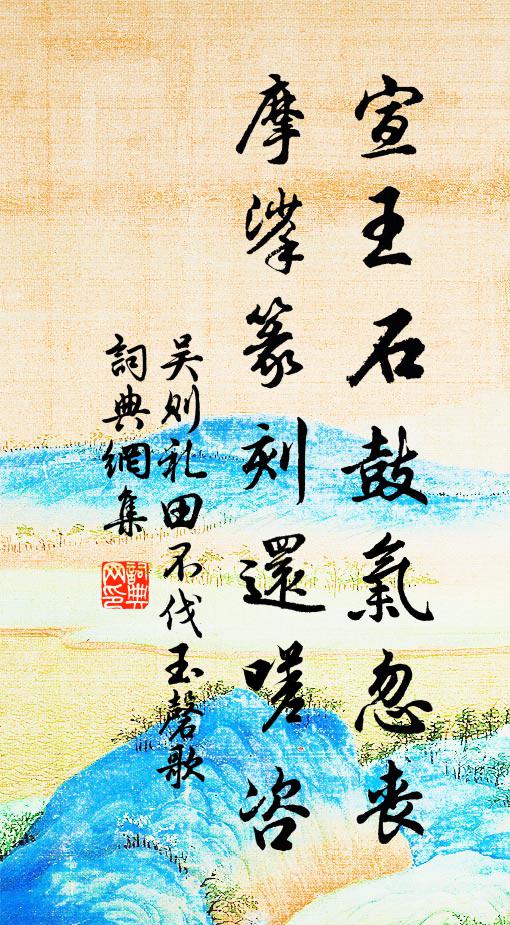 宣王石鼓氣忽喪
摩挲篆刻還嗟咨
吴则礼田不伐玉磬歌
詞典網集
詞典網印